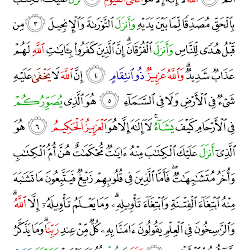 بِٱلْحَقِّ مُصَدِّقًا لِّمَا بَيْنَ يَدَيْهِ وَأَنزَلَ ٱلتَّوْرَىٰةَ وَٱلْإِنجِيلَ ٣ مِن
قَبْلُ هُدًى لِّلنَّاسِ وَأَنزَلَ ٱلْفُرْقَانَ إِنَّ ٱلَّذِينَ كَفَرُوا۟ بِـَٔايَـٰتِ ٱللَّهِ لَهُمْ
عَذَابٌ شَدِيدٌ وَٱللَّهُ عَزِيزٌ ذُو ٱنتِقَامٍ ٤ إِنَّ ٱللَّهَ لَا يَخْفَىٰ عَلَيْهِ
شَىْءٌ فِى ٱلْأَرْضِ وَلَا فِى ٱلسَّمَآءِ ٥ هُوَ ٱلَّذِى يُصَوِّرُكُمْ
فِى ٱلْأَرْحَامِ كَيْفَ يَشَآءُ لَآ إِلَـٰهَ إِلَّا هُوَ ٱلْعَزِيزُ ٱلْحَكِيمُ ٦ هُوَ
ٱلَّذِىٓ أَنزَلَ عَلَيْكَ ٱلْكِتَـٰبَ مِنْهُ ءَايَـٰتٌ مُّحْكَمَـٰتٌ هُنَّ أُمُّ ٱلْكِتَـٰبِ
وَأُخَرُ مُتَشَـٰبِهَـٰتٌ فَأَمَّا ٱلَّذِينَ فِى قُلُوبِهِمْ زَيْغٌ فَيَتَّبِعُونَ مَا تَشَـٰبَهَ
مِنْهُ ٱبْتِغَآءَ ٱلْفِتْنَةِ وَٱبْتِغَآءَ تَأْوِيلِهِۦ وَمَا يَعْلَمُ تَأْوِيلَهُۥٓ إِلَّا ٱللَّهُ
وَٱلرَّٰسِخُونَ فِى ٱلْعِلْمِ يَقُولُونَ ءَامَنَّا بِهِۦ كُلٌّ مِّنْ عِندِ رَبِّنَا وَمَا يَذَّكَّرُ